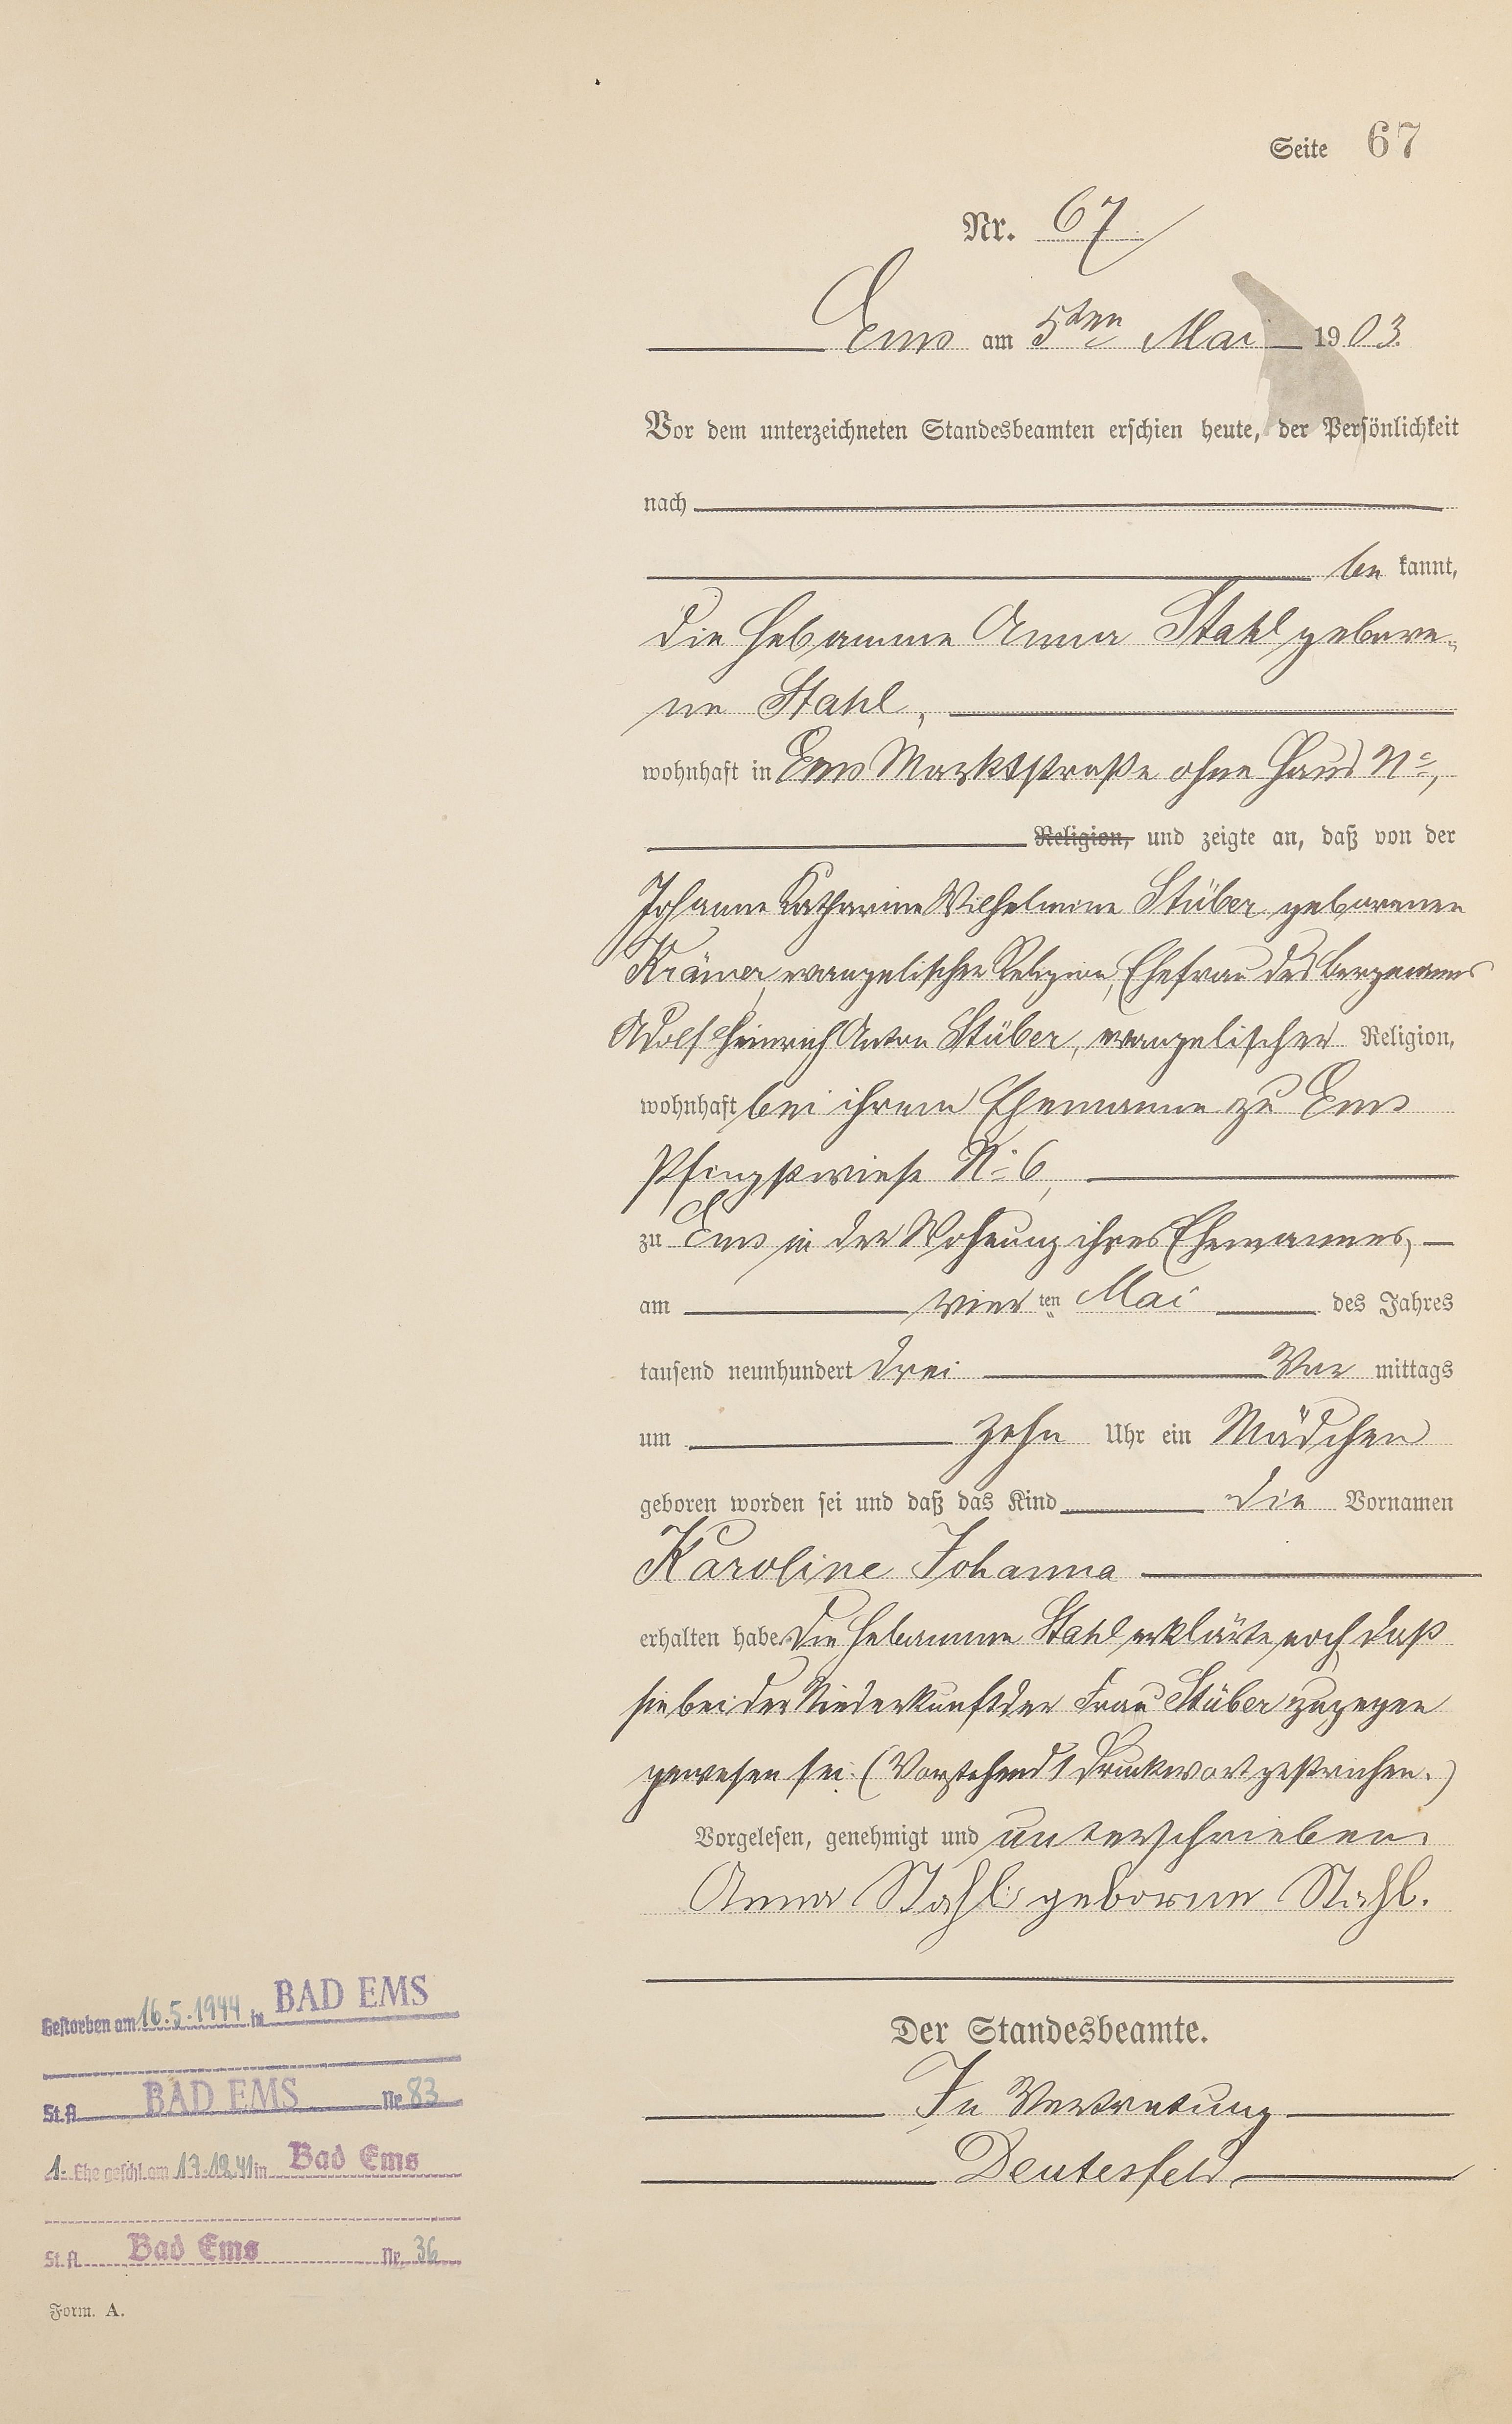 Seite 67
Nr. 67
Ems am 5ten Mai 1903.
Vor dem unterzeichneten Standesbeamten erschien heute, der Persönlichkeit
nach
be kannt,
die Hebamme Anna Stahl gebore-
ne Stahl,
wohnhaft in Ems Marktstraße ohne Haus No,
Religion, und zeigte an, daß von der
Johanne Katharine Wilhelmine Stüber geborenen
Krämer, evangelischer Religion, Ehefrau des Bergmanns
Adolf Heinrich Anton Stüber, evangelischer Religion,
wohnhaft bei ihrem Ehemanne zu Ems
Pfingstwiese No 6,
zu Ems in der Wohnung ihres Ehemannes,
am vier ten Mai des Jahres
tausend neunhundert drei Vor mittags
um zehn Uhr ein Mädchen
geboren worden sei und daß das Kind die Vornamen
Karoline Johanna
erhalten habe. Die Hebamme Stahl erklärte noch, daß
sie bei der Niederkunft der Frau Stüber zugegen
gewesen sei. (Vorstehend 1 Druckwort gestrichen.)
Vorgelesen, genehmigt und unterschrieben.
Anna Stahl geborene Stahl.
Der Standesbeamte.
In Vertretung
Deutesfeld
Gestorben am 16.5.1944 in BAD EMS
St.A. BAD EMS Nr. 83
1. Ehe geschl. am 17.12.41 in Bad Ems
St.A. Bad Ems Nr. 36
Form. A.